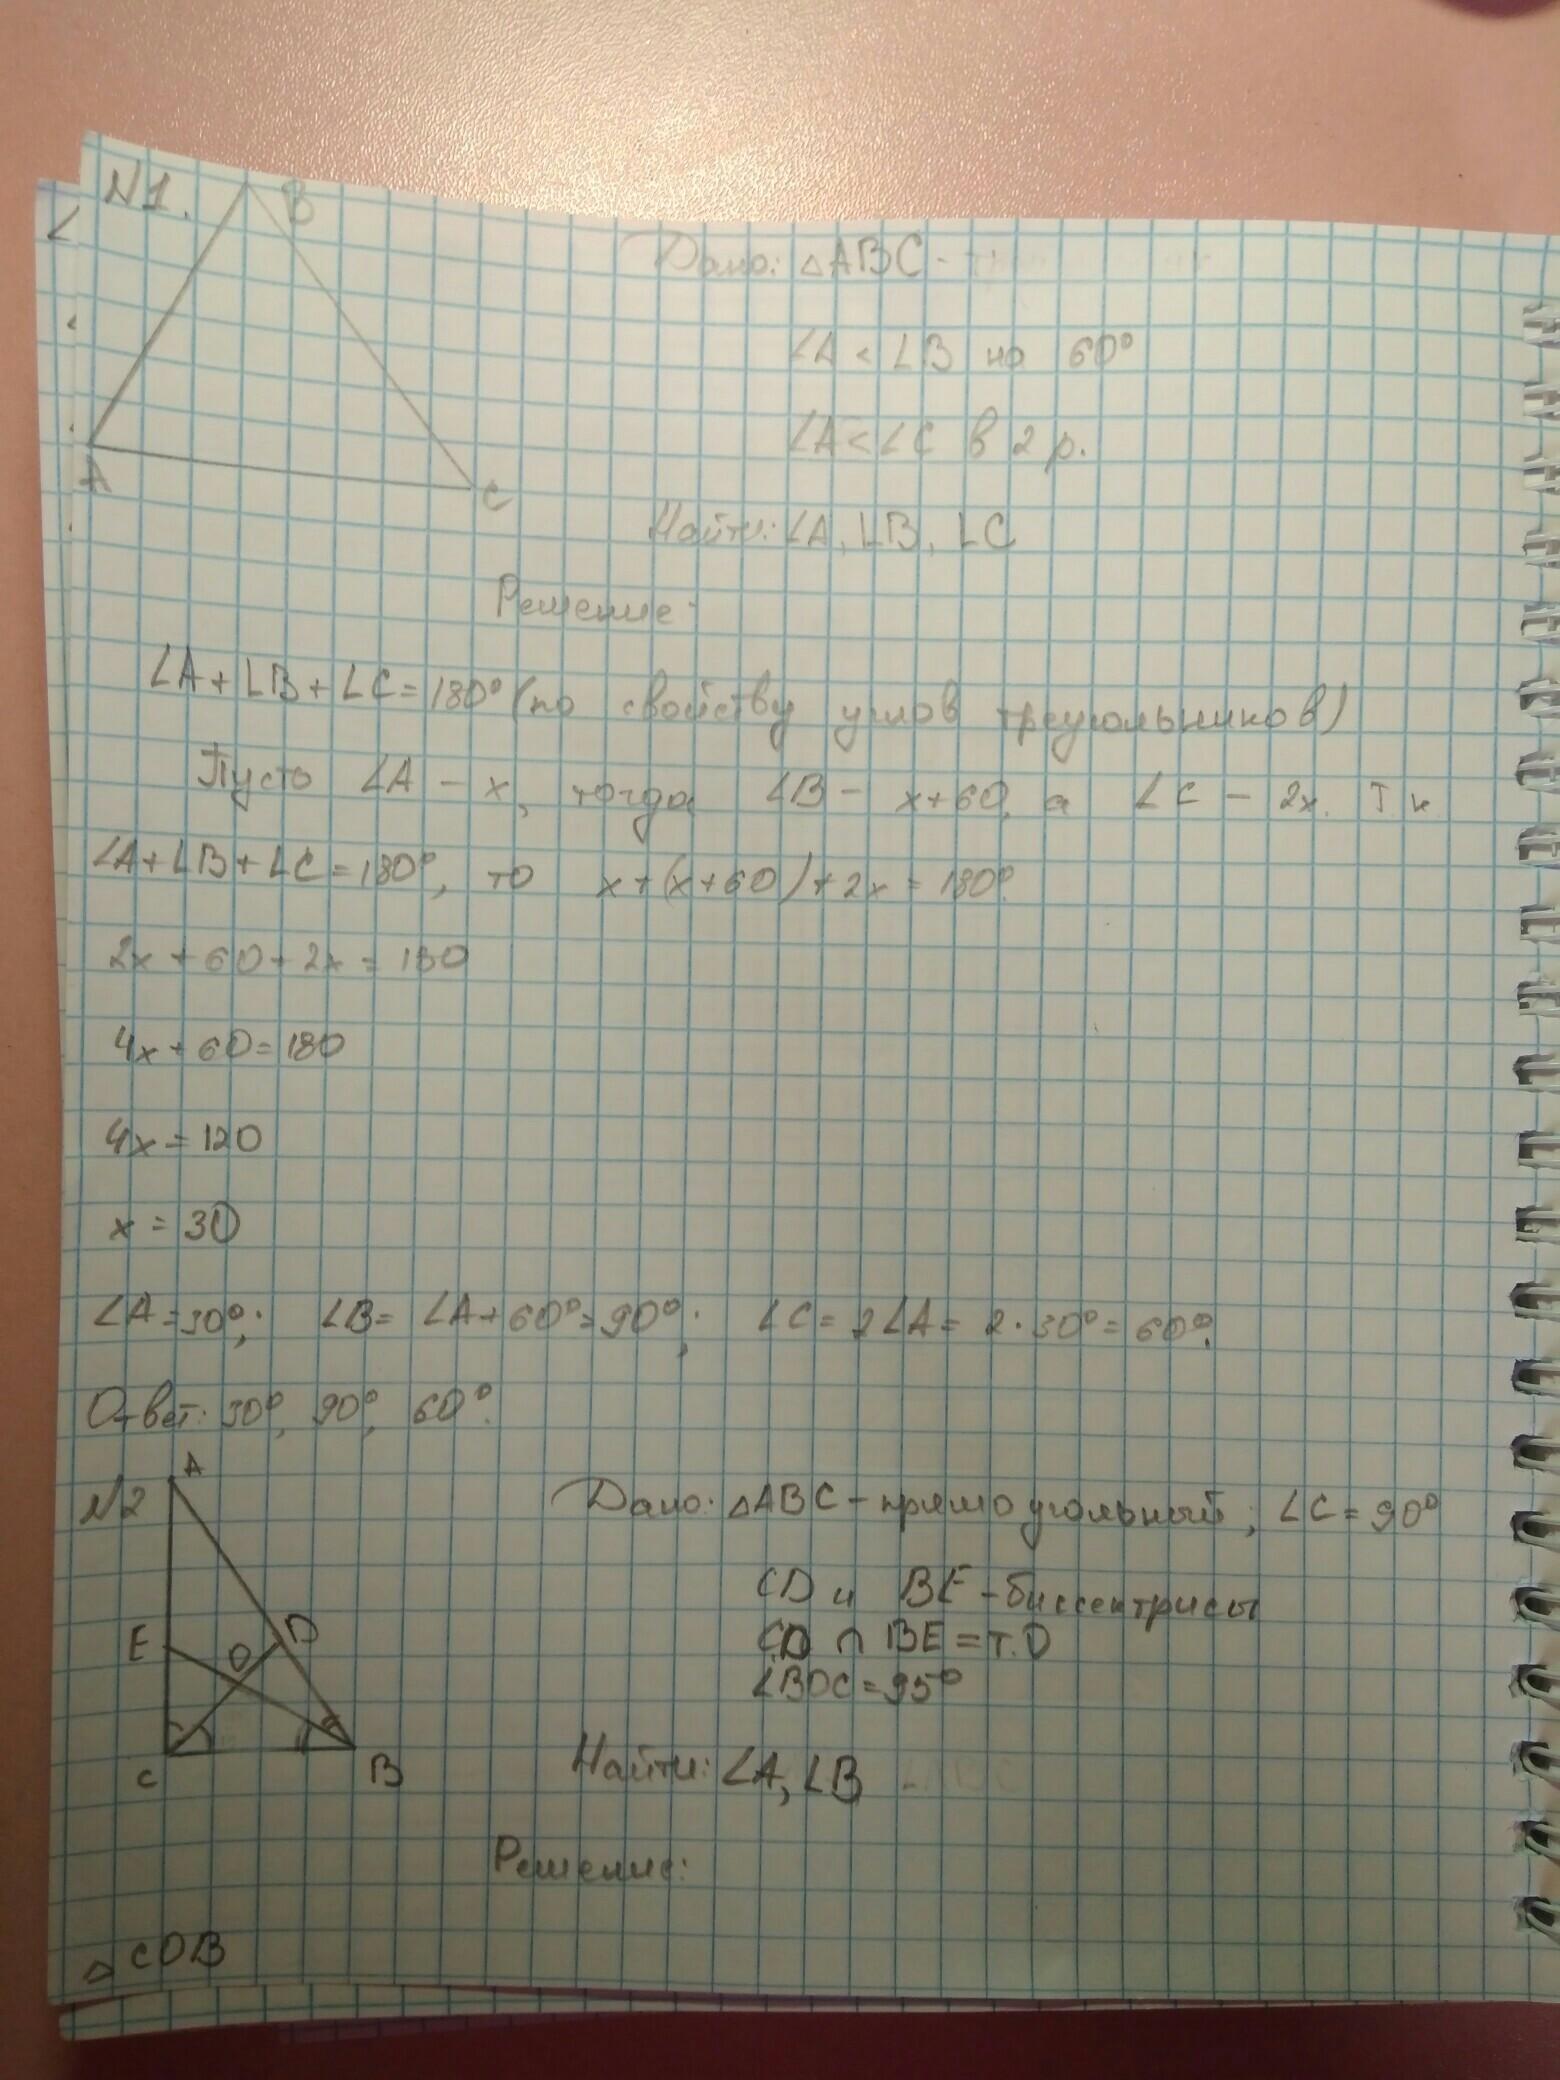 N1.
B
A
C
Дано: △ABC -
∠A < ∠B на 60°
∠A < ∠C в 2 р.
Найти: ∠A, ∠B, ∠C
Решение:
∠A + ∠B + ∠C = 180° (по свойству углов треугольников)
Пусть ∠A - x, тогда ∠B - x+60, а ∠C - 2x. Т.к.
∠A + ∠B + ∠C = 180°, то x+(x+60)+2x = 180°.
2x + 60 + 2x = 180
4x + 60 = 180
4x = 120
x = 30
∠A = 30°; ∠B = ∠A + 60° = 90°; ∠C = 2∠A = 2·30° = 60°.
Ответ: 30°, 90°, 60°.
N2
A
E
O
D
C
B
Дано: △ABC - прямоугольный; ∠C = 90°
CD и BE - биссектрисы
CD ∩ BE = т.O
∠BOC = 95°
Найти: ∠A, ∠B
Решение:
△COB